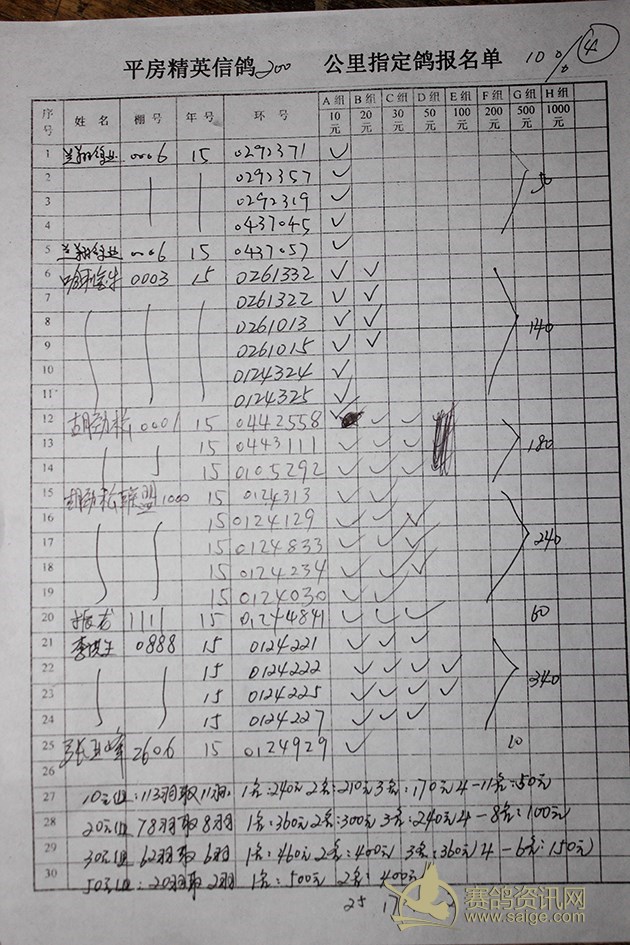 平房精英信鸽200 公里指定鸽报名单 100% ④
序号 姓名 棚号 年号 环号 A组10元 B组20元 C组30元 D组50元 E组100元 F组200元 G组500元 H组1000元
1 0006 15 0292371 ✓
2 0292357 ✓
3 0292319 ✓
4 0437045 ✓
5 0006 15 0437057 ✓
6 0003 15 0261332 ✓ ✓
7 0261322 ✓ ✓
8 0261013 ✓ ✓ 140
9 0261015 ✓ ✓
10 0124324 ✓
11 0124325 ✓
12 胡劲松 0001 15 0442558 ✓ ✓ ✓
13 15 0443111 ✓ ✓ ✓ 180
14 15 0105292 ✓ ✓ ✓
15 胡劲松联盟 1000 15 0124313 ✓ ✓
16 15 0124129 ✓ ✓ ✓
17 15 0124833 ✓ ✓ ✓ 240
18 15 0124234 ✓ ✓ ✓
19 15 0124030 ✓ ✓
20 1111 15 01244841 ✓ ✓ ✓ 60
21 0888 15 0124221 ✓ ✓ ✓
22 15 0124222 ✓ ✓ ✓ ✓ 340
23 15 0124225 ✓ ✓ ✓ ✓
24 15 0124227 ✓ ✓ ✓
25 2606 15 0124929 ✓ 10
26
27 10元组:113羽取11羽. 1名:240元 2名:210元 3名:170元 4-11名:50元
28 20元组 78羽取8羽 1名:360元 2名:300元 3名:240元 4-8名:100元
29 30元组 62羽取6羽 1名:460元 2名:400元 3名:360元 4-6名:150元
30 50元组:20羽取2羽 1名:500元 2名:400元
25 17
赛鸽资讯网
www.saige.com